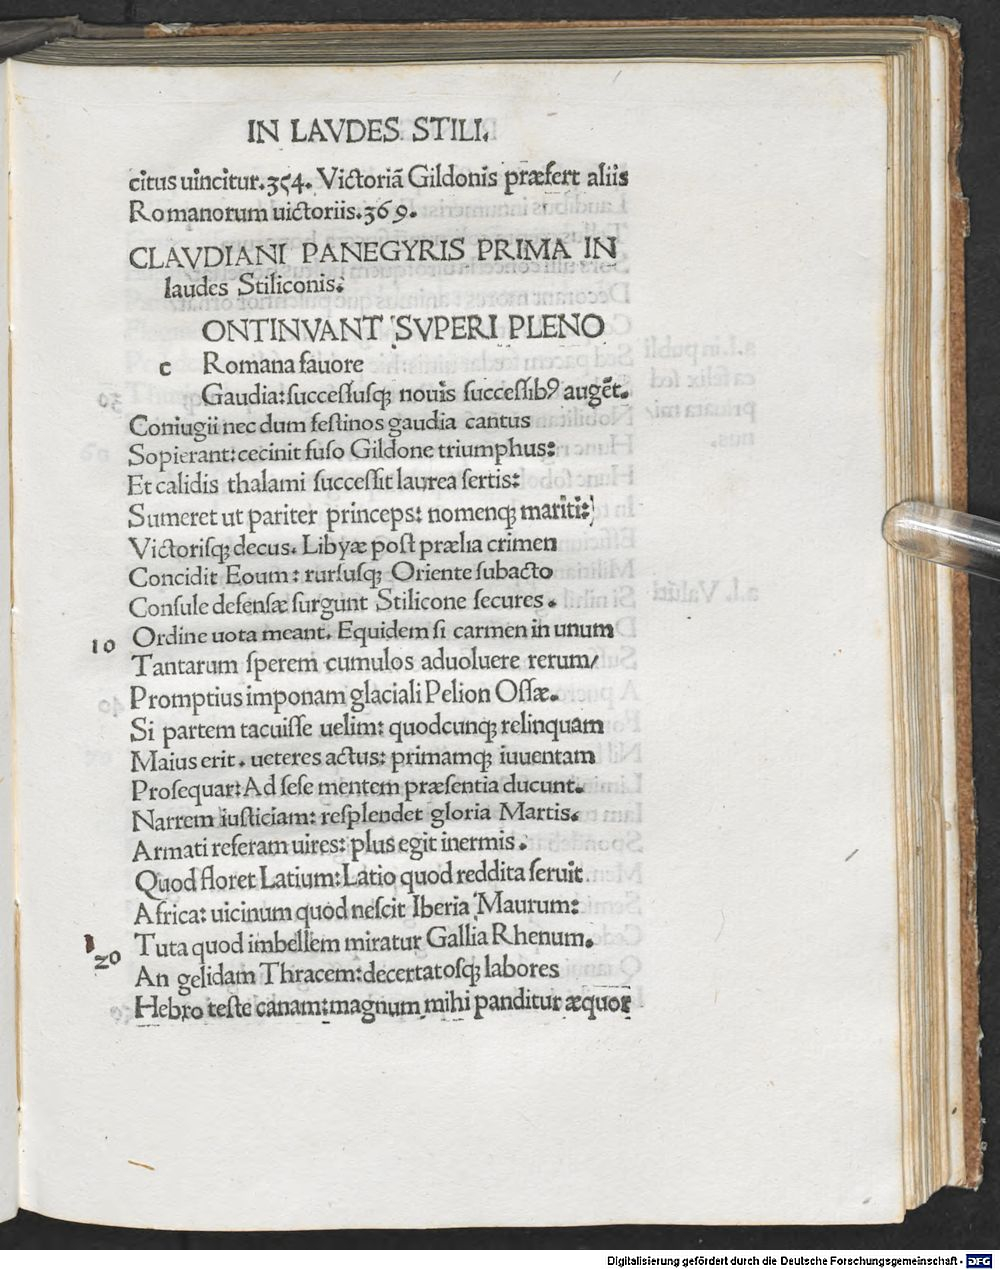 IN LAVDES STILI.
citus uincitur.354. Victoriā Gildonis præfert aliis
Romanorum uictoriis.369.
CLAVDIANI PANEGYRIS PRIMA IN
laudes Stiliconis.
ONTINVANT SVPERI PLENO
c Romana fauore
Gaudia:succeſſuſqꝫ nouis ſucceſſibꝰ augēt.
Coniugii nec dum feſtinos gaudia cantus
Sopierant: cecinit fuſo Gildone triumphus:
Et calidis thalami ſucceſſit laurea ſertis:
Sumeret ut pariter princeps: nomenqꝫ mariti:
Victoriſqꝫ decus. Libyæ poſt prælia crimen
Concidit Eoum: rurſuſqꝫ Oriente ſubacto
Conſule defenſæ ſurgunt Stilicone ſecures.
10 Ordine uota meant. Equidem ſi carmen in unum
Tantarum ſperem cumulos aduoluere rerum/
Promptius imponam glaciali Pelion Oſſæ.
Si partem tacuiſſe uelim: quodcunqꝫ relinquam
Maius erit. ueteres actus: primamqꝫ iuuentam
Proſequar: Ad ſeſe mentem præſentia ducunt.
Narrem iuſticiam: reſplendet gloria Martis.
Armati referam uires: plus egit inermis.
Quod floret Latium: Latio quod reddita ſeruit
Africa: uicinum quod neſcit Iberia Maurum:
20 Tuta quod imbellem miratur Gallia Rhenum.
An gelidam Thracem: decertatoſqꝫ labores
Hebro teſte canam: magnum mihi panditur æquor
Digitalisierung gefördert durch die Deutsche Forschungsgemeinschaft - DFG